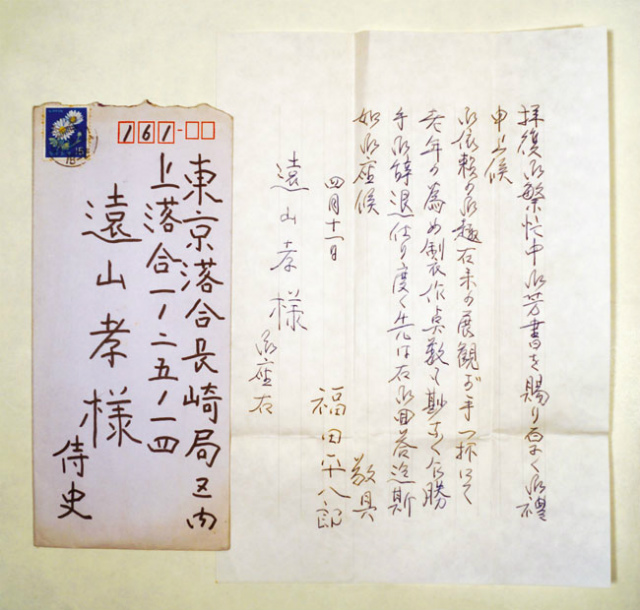 拝復御繁忙中御芳書を賜り厚く御禮
申上候
御依頼の御趣 の展観が手一杯にて
老年の為め製作点数も尠なく乍勝
手御辞退仕り度く先は右御回答迄斯
如御座候 敬具
四月十一日
福田平八郎
遠山孝様
御座右
161
東京落合長崎局区内
上落合一ノ二五ノ一四
遠山孝様
侍史